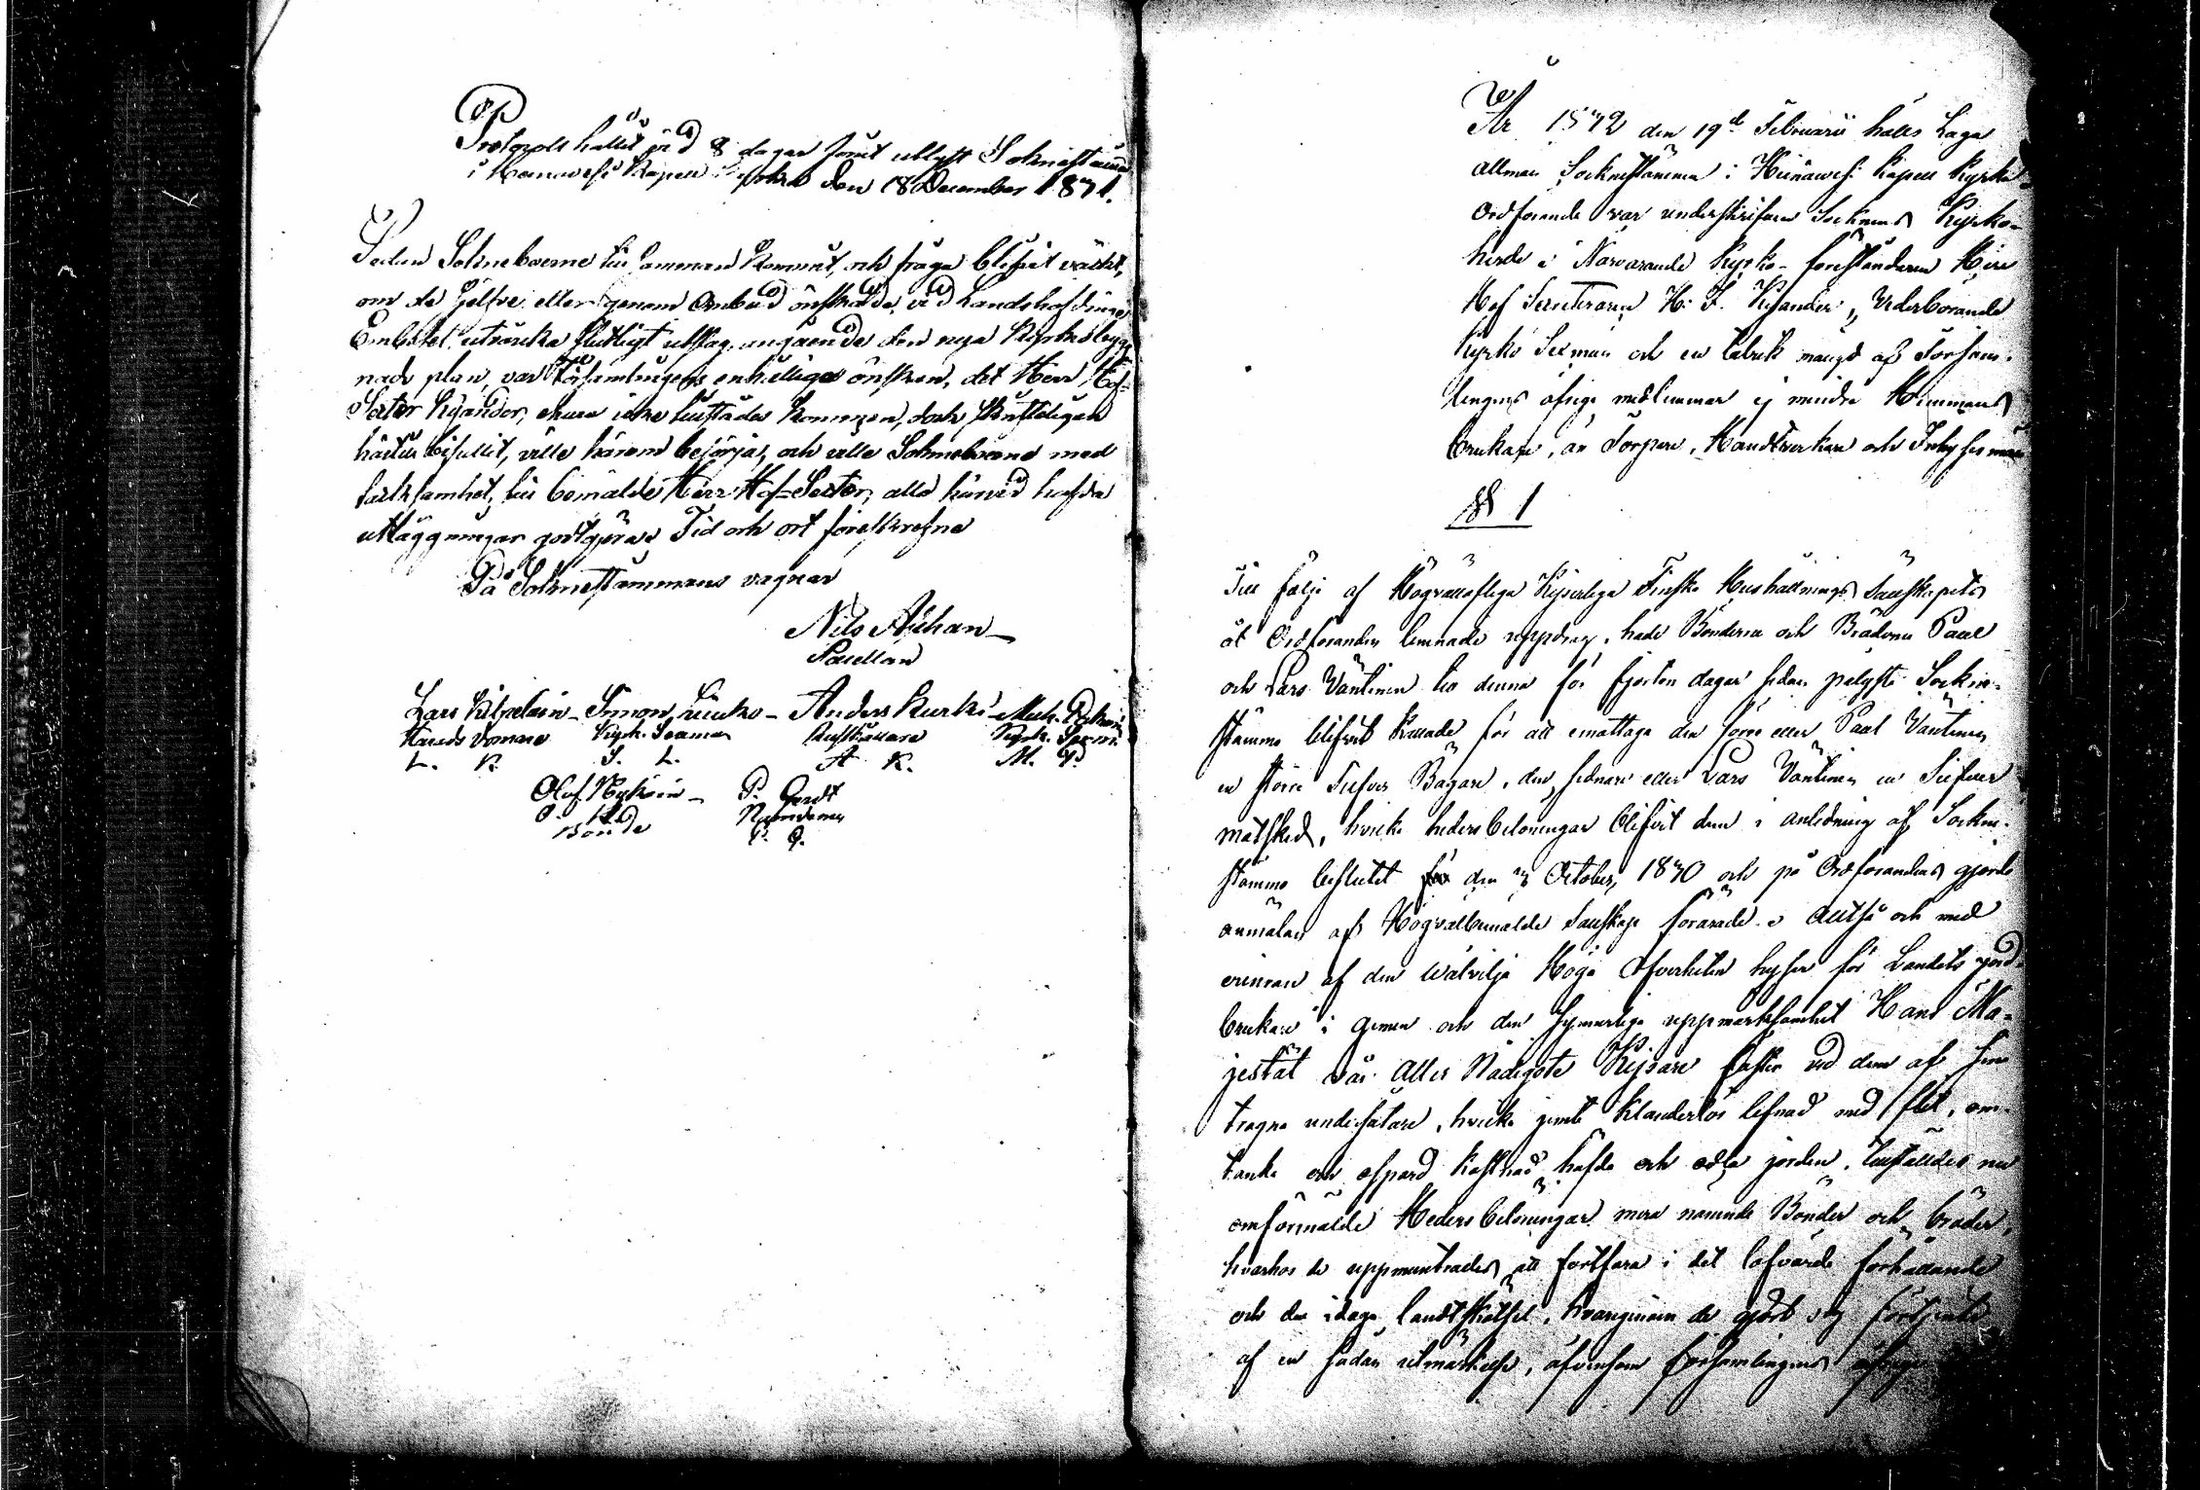 Protocoll hållit vid 8 dagar förut utlyst Soknestämma
i Heinävesi Kapell den 18 December 1871.
Sedan Sokneboerne till samman kommit, och fråga blifvit väckt,
om de sjelfve eller genom Ombud önskade, vid Landshöfdinge
Embetet utvärka slutligt utslag, angående den nya Kyrkobygg-
nads plan, var Församlingens enhällige önskan, det Herr Hof-
Secter Kyander, ehuru icke tillstädes kommen, dock skriftligen
härtill bifallit, ville härom besörja, och ville Sokneboerne med
tacksamhet, till bemälde Herr Hof-Secter, alla härvid hafda
utläggningar godtgöra, Tid och ort föreskrefne
På Soknestämmans vägnar
Nils Aichan
Pauellan
Lars - Simon - Anders Kurki - Mich.
Härads Domare Kyrk. Sexman Rusthållare Kyrk. Sexm.
L. K. S. L. A K. M. P.
Olof Nykäin - P. Gerdt
O. Nämdeman
Bonde P. G.
År 1872 den 19de Februarii hålls Laga
allmän Socknestämma i Heinäwesi Kapell Kyrka
Ordförande var underskrifven Socknens Kyrko-
herde i Närvarande Kyrko-föreståndaren Herr
Hof Secreteraren H. J. Kyander, Vederbörande
Kyrko Sexmän och en talrik mängd af Försam-
lingens öfriga medlemmar ej mindre Hemmans
brukare, än Torpare, Handtverkare och Inhyses män
§ 1
Till följe af Högvällofliga Kejserliga Finska Hushållnings Sällskapets
åt Ordföranden lemnade uppdrag, hade Bönderna och Bröderna Paul
och Lars Väntinen til denna för fjorton dagar sedan pålyste Sockne-
stämma blifvit kallade för att emottaga den förre eller Paul Väntinen
en större Silfver Bägare, den sednare eller Lars Väntinen en Silfver
matsked, hvilka heders belöningar blifvit dem i anledning af Sockne-
stämmo beslutet den 3 October 1870 och på Ordförandens gjorde
anmälan af Högvälbemälde Sällskap förärade. Alltså och med
erinran af den wälvilja Höga Öfverheten hyser för Landets jord-
brukare i gemen och den synnerliga uppmärksamhet Hans Ma-
jestät vår Aller Nådigste Kejsare fäster vid dem af sine
trogna undersåtare, hvilka jemte klanderlös lefnad med flit, om-
tanke och ospard kostnad häfda och odla jorden, tillställdes nu
omförmälde Heders belöningar mera nämnde Bönder och bröder,
hvarhos de uppmuntrades att fortfara i det lofvärda förhållande
och den idoga landtskötsel, hvarigenom de gjort sig förtjente
af en sådan utmärkelse, äfvensom församlingens öfriga